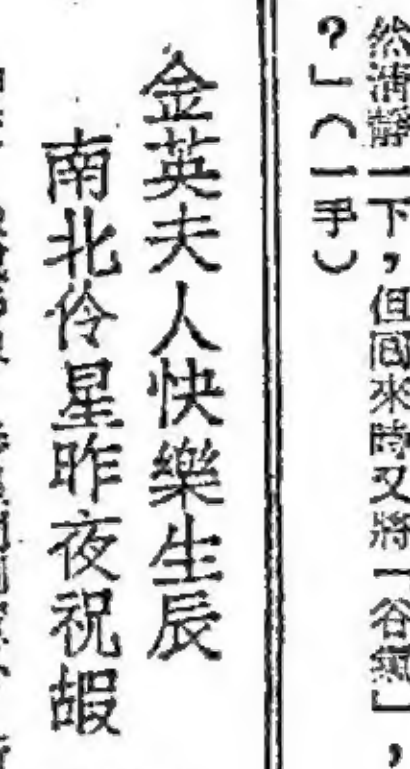 然清靜一下，但囘來時又將「谷氣」，
？」（一手）
金英夫人快樂生辰
南北伶星昨夜祝嘏